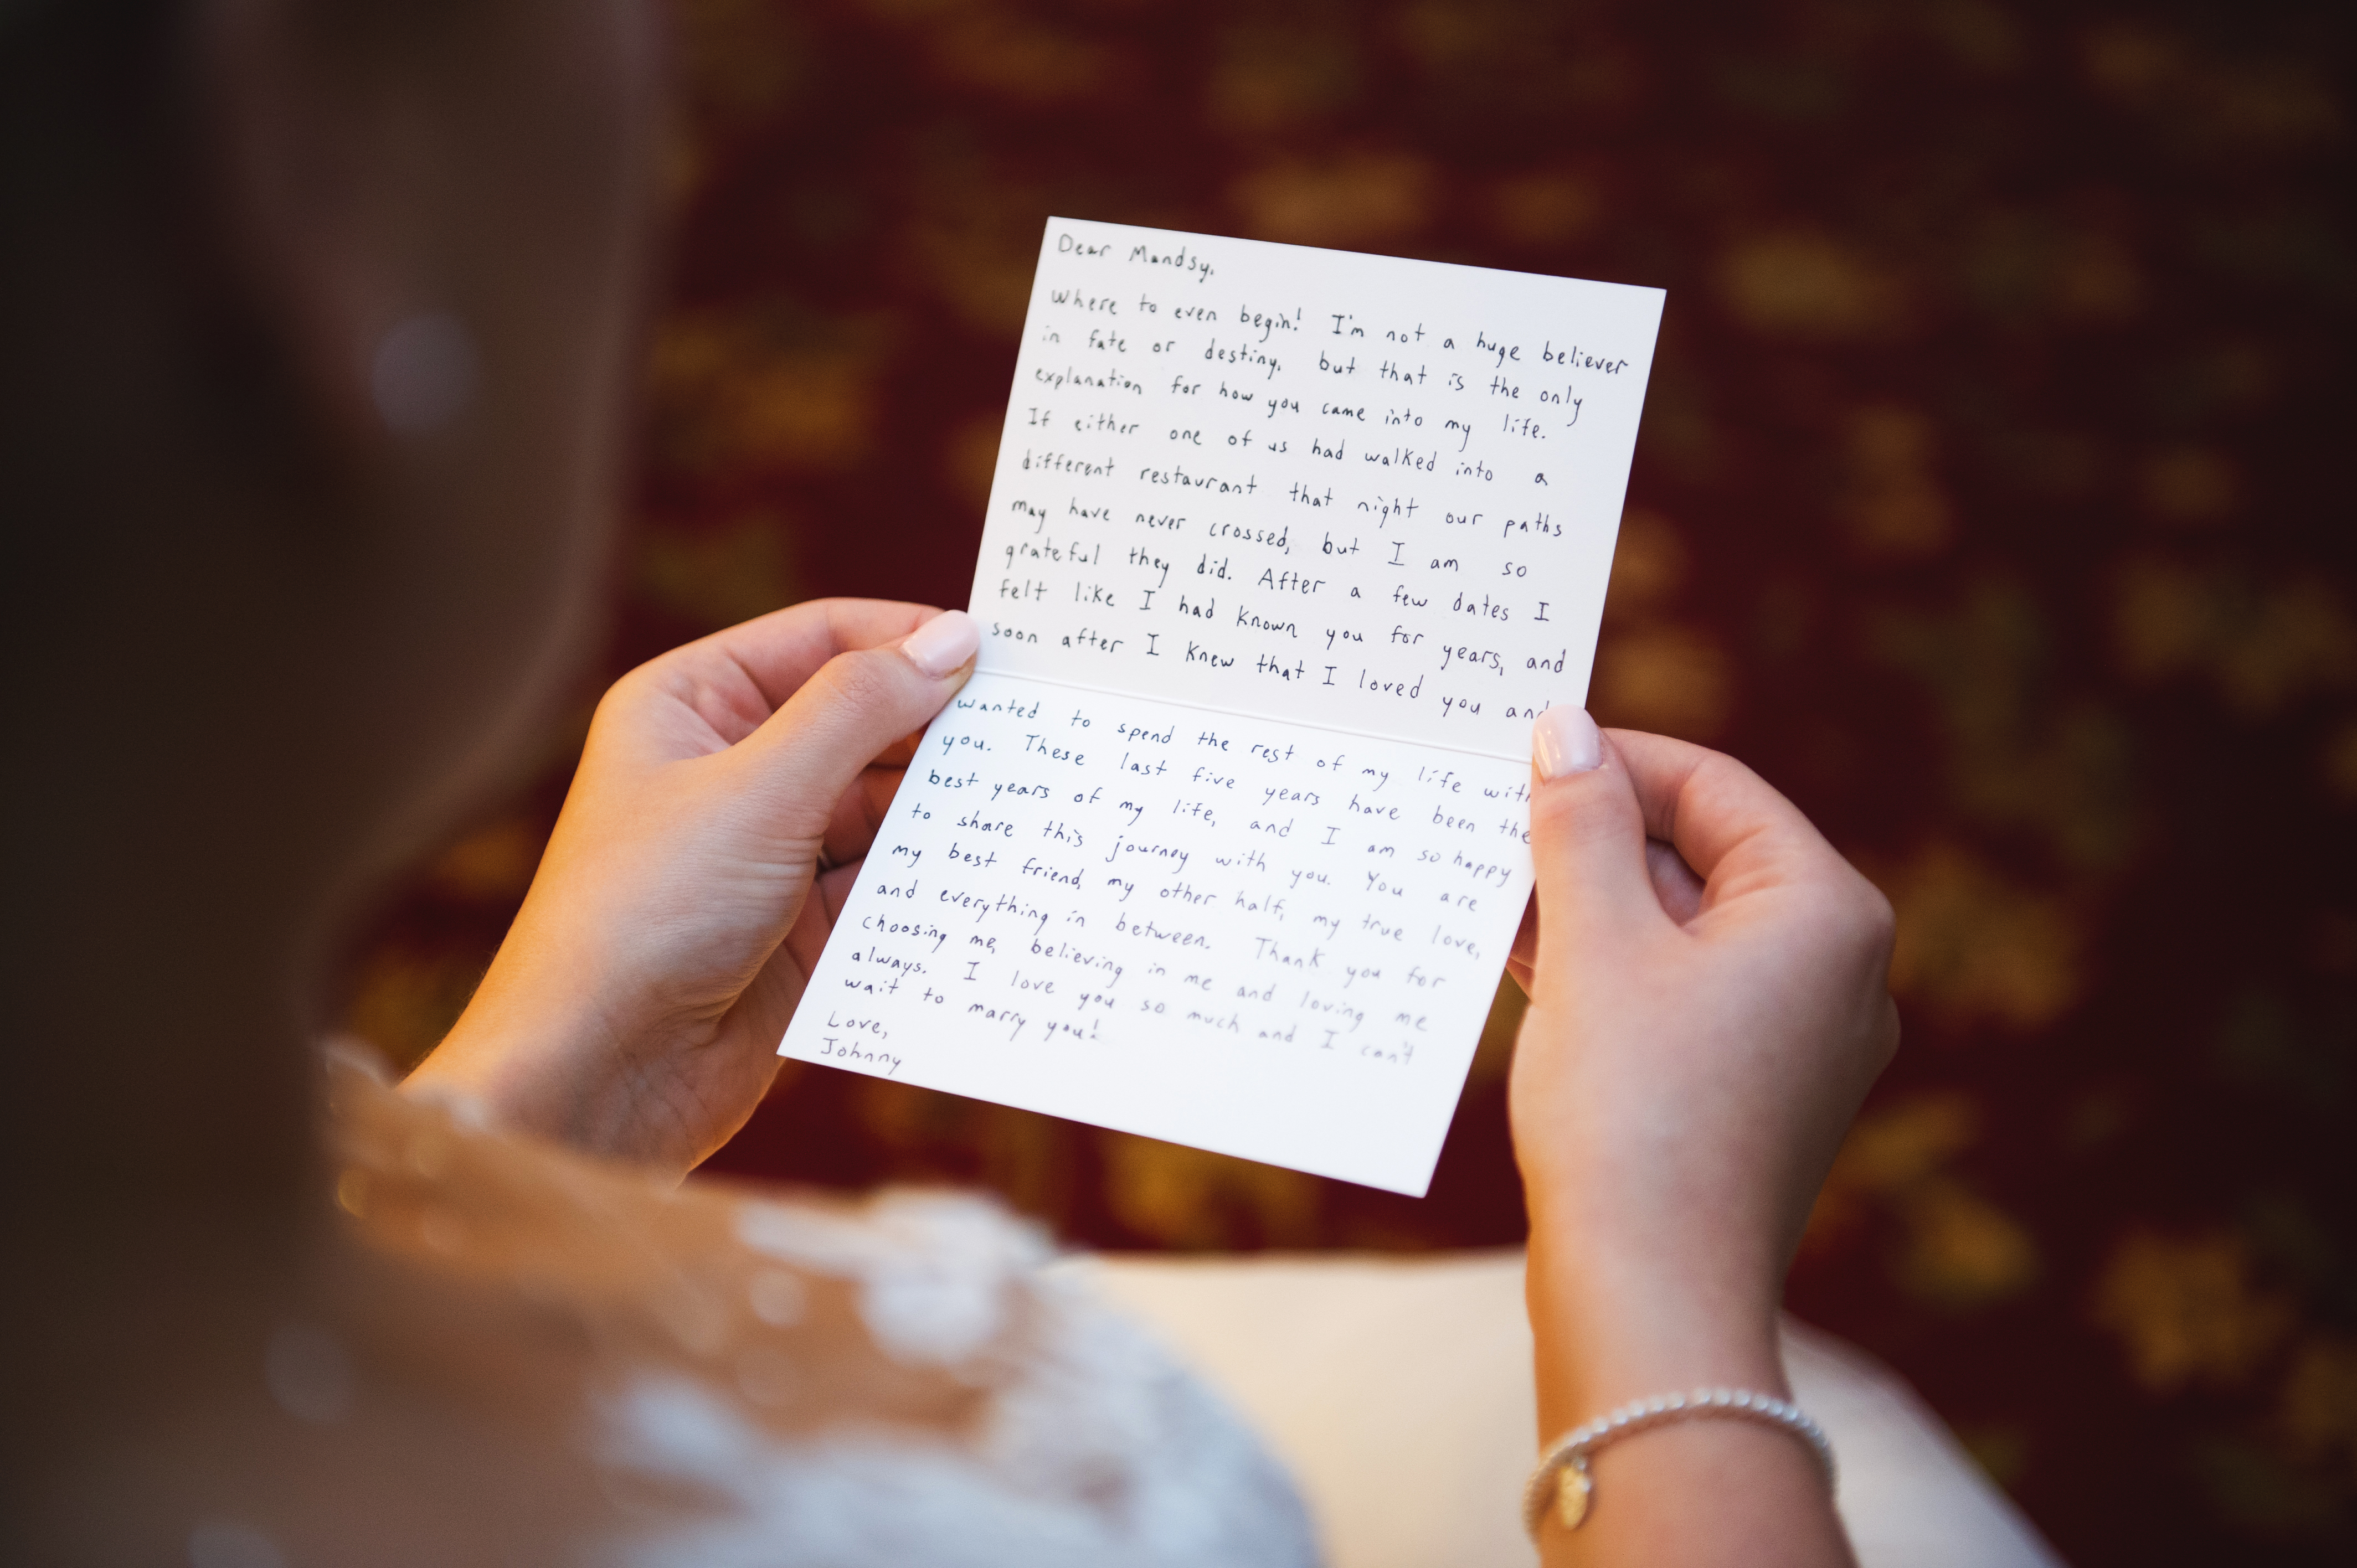 Dear Mandsy,
Where to even begin! I'm not a huge believer
in fate or destiny, but that is the only
explanation for how you came into my life.
If either one of us had walked into a
different restaurant that night our paths
may have never crossed, but I am so
grateful they did. After a few dates I
felt like I had known you for years, and
soon after I knew that I loved you and
wanted to spend the rest of my life with
you. These last five years have been the
best years of my life, and I am so happy
to share this journey with you. You are
my best friend, my other half, my true love,
and everything in between. Thank you for
choosing me, believing in me and loving me
always. I love you so much and I can't
wait to marry you!
Love,
Johnny